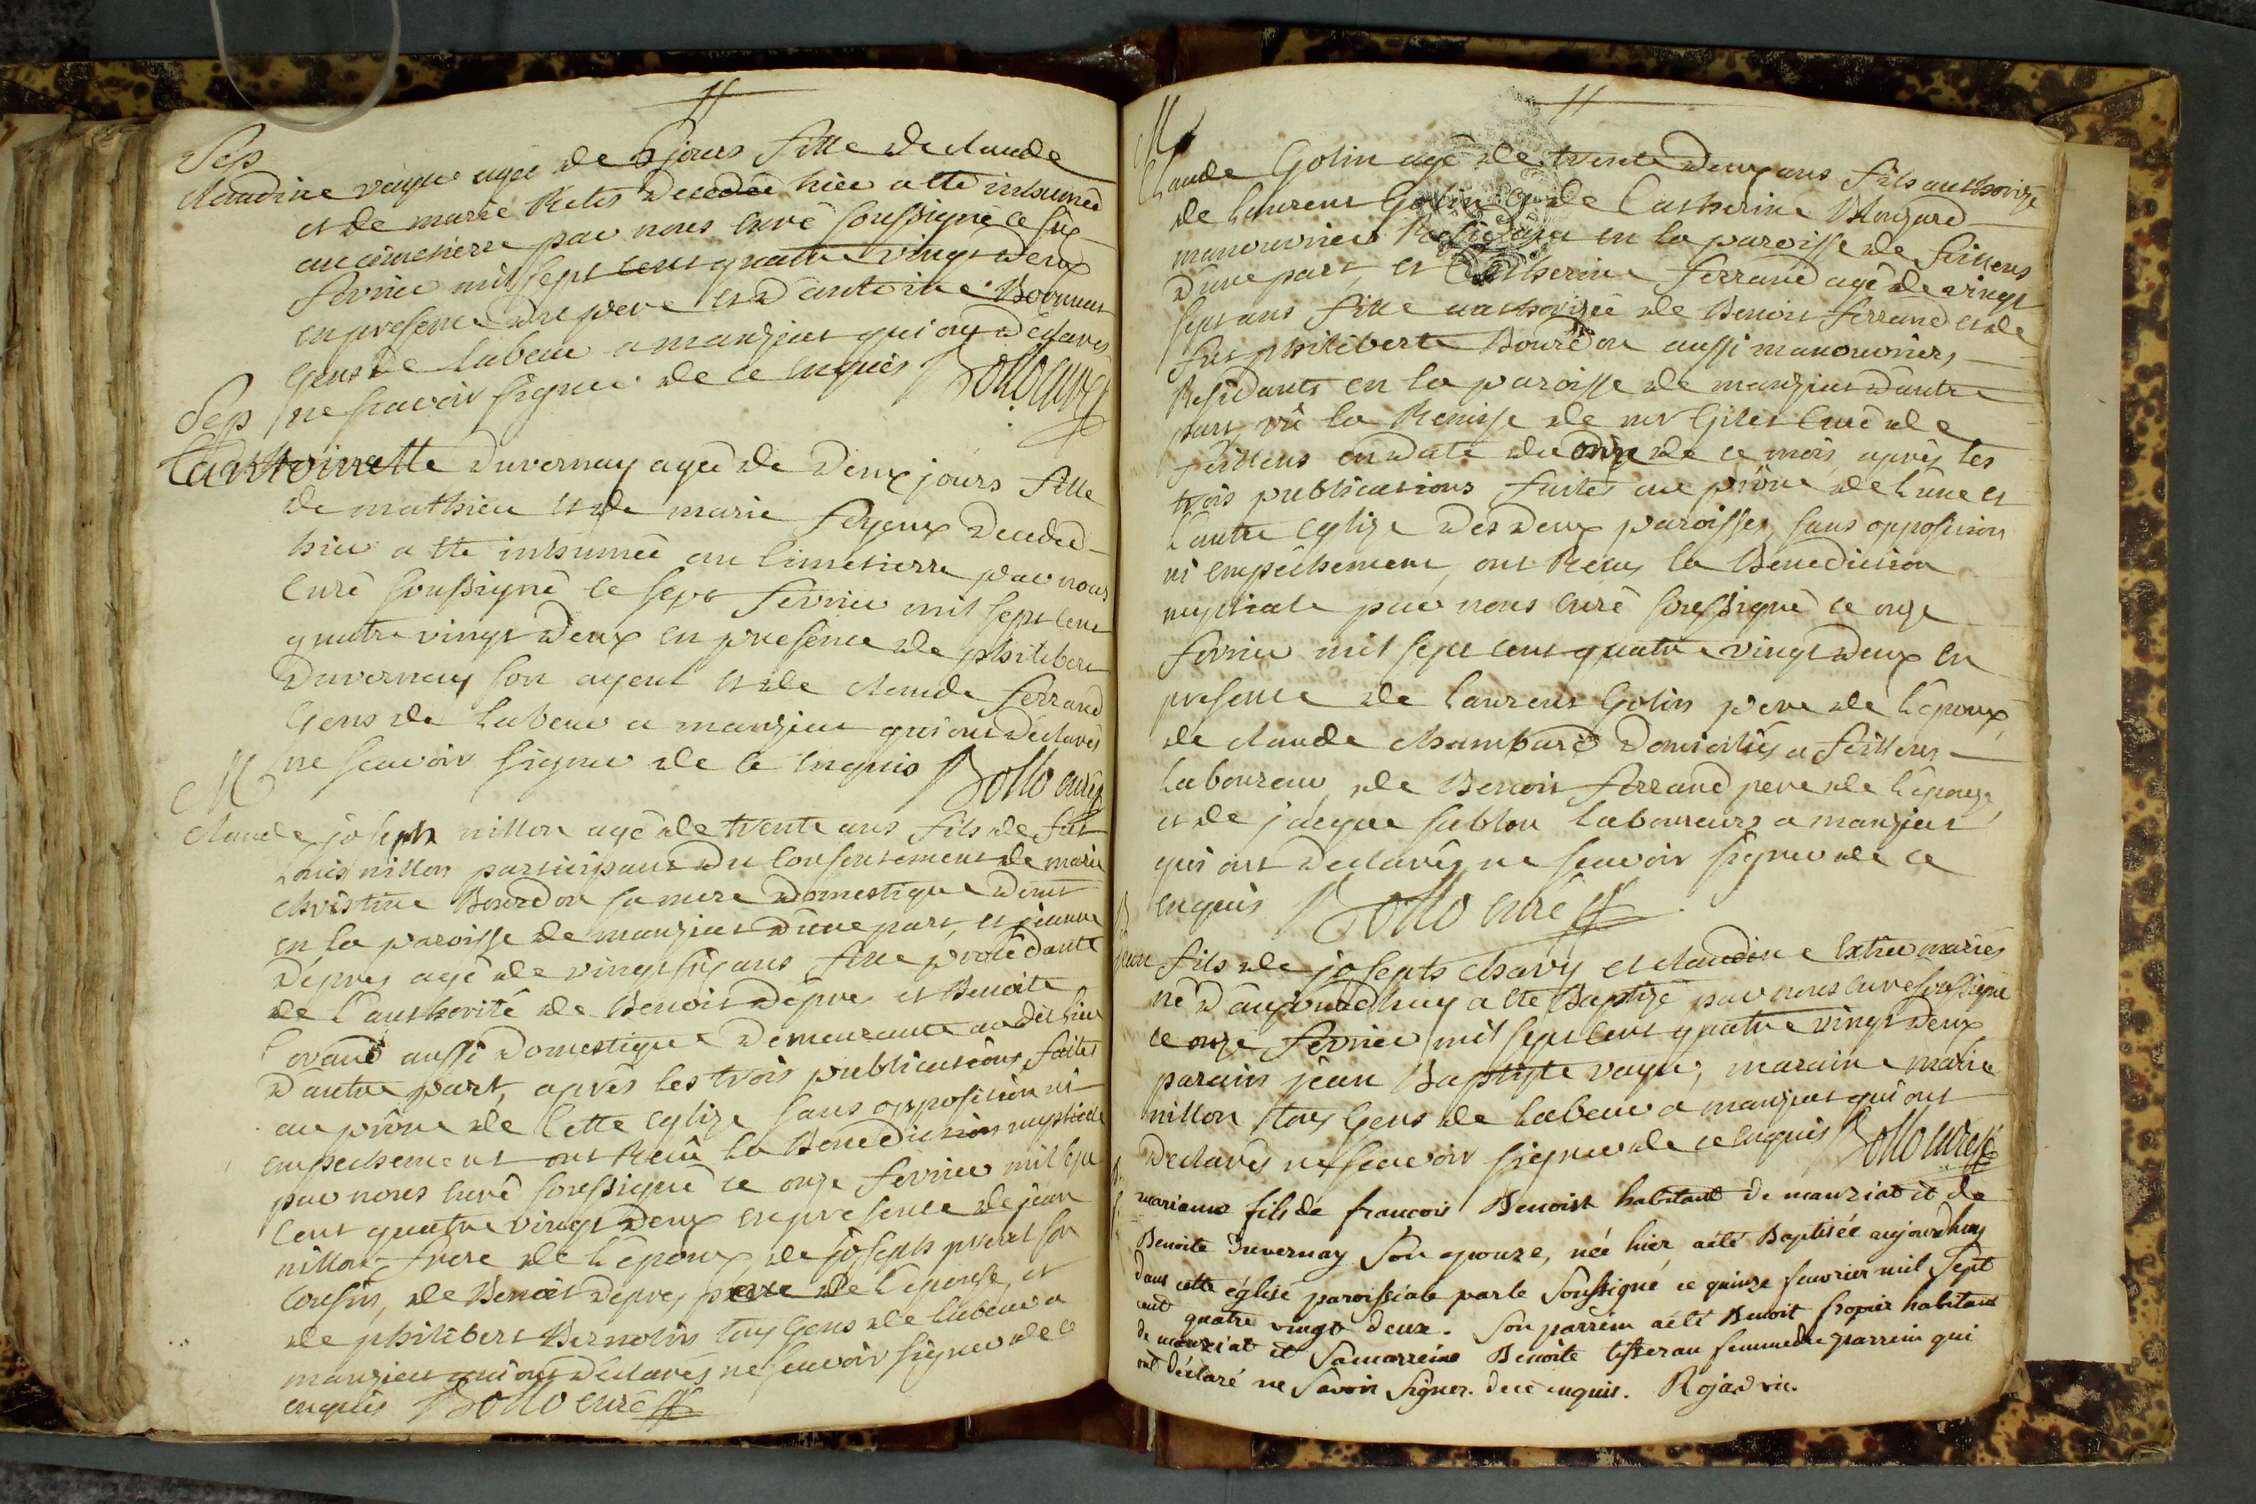 Sep
claudine vayu agée de 6 jours fille de claude
et de marie Retis decedée hier a ete inhumeé
au cimetierre par nous curé soussigné ce six
fevrier mil sept cent quatre vingt deux
en presence du pere et d'antoine Bovemut
gens de labeur a manziat qui ont declarés
ne scavoir signer de ce enquis Bollo curé
Sep
antoinette Duvernay agée de Deux jours fille
de mathieu et de marie feyeux Decedeé
hier a ete inhumeé au Cimetierre par nous
Curé soussigné le sept fevrier mil sept cent
quatre vingt Deux en presence de philibert
Duvernay son ayeul et de claude ferrand
Gens de labeur a manziat qui ont déclarés
ne scavoir signer de ce enquis Bollo curé
M
claude joseph nillon agé de trente ans fils de fut
Louis nillon participant du Consentement de marie
christine Bourdon sa mere Domestique Demt
en la paroisse de manziat d'une part, et jeanne
Déprez agé de vingt six ans fille procédante
de l'authorité de Benoit Dépre et Benoite
aussi Domestique Demeurante au dit lieu
d'autre part, aprés les trois publications faites
au prône de Cette eglize sans opposition ni
empechement ont Reçu la Benediction nuptiale
par nous curé soussigné ce onze fevrier mil sept
Cent quatre vingt Deux en presence de jean
nillon frere de l'époux, de joseph pvelet son
Cousin, de Benoit Deprez pere de l'epouse, et
de philibert Bernolin tous Gens de labeur a
manziat qui ont déclarés ne scavoir signer de ce
enquis Bollo curé
M
Claude Golin agé de trente Deux ans fils authorizé
de Laurent Golin et de Catherine Monzard
manouvriers en la paroisse de feillens
D'une part, et Catherine ferrand agé de vingt
sept ans fille authorizée de Benoit ferrand et de
fut philiberte Bourdon aussi manouvriers,
Residants en la paroisse de manziat d'autre
part vû la Remisse de mr Gilet Curé de
feillens en date du onze de ce mois, aprés les
trois publications faites au prône de l'une et
l'autre eglize des deux paroisses, sans opposition
ni empêchement, ont Reçus la Benediction
nuptiale par nous curé soussigné ce onze
fevrier mil sept cent quatre vingt Deux en
presence de Laurent Golin pere de l'epoux,
de claude chambard Domiciliés a feillens
laboureur, de Benoit ferrand pere de l'épouze,
et de jacque sablon laboureurs a manziat
qui ont declarés ne scavoir signer de ce
enquis Bollo curé
B
jean fils de joseph chavy et claudine mariés
né d'aujourdhuy a ete Baptizé par nous cure soussigné
ce onze fevrier mil sept cent quatre vingt Deux
parain jean Baptiste vayu; maraine marie
nillon tous Gens de labeur a manziat qui ont
declarés ne scavoir signer de ce enquis Bollo curé
mariane fils de francois Benoist habitant de manziat et de
Benoite Duvernay Son epouze, née hier, aété Baptisée aujourdhuy
dans cette église paroissiale par le Soussigné ce quinze feuvrier mil Sept
cent quatre vingt deux. Son parrein aété Benoit fropier habitant
de manziat et Samarreine Benoite tisseran femme du parrein qui
ont déclaré ne Savoir Signer. de ce enquis. Rojad vic.